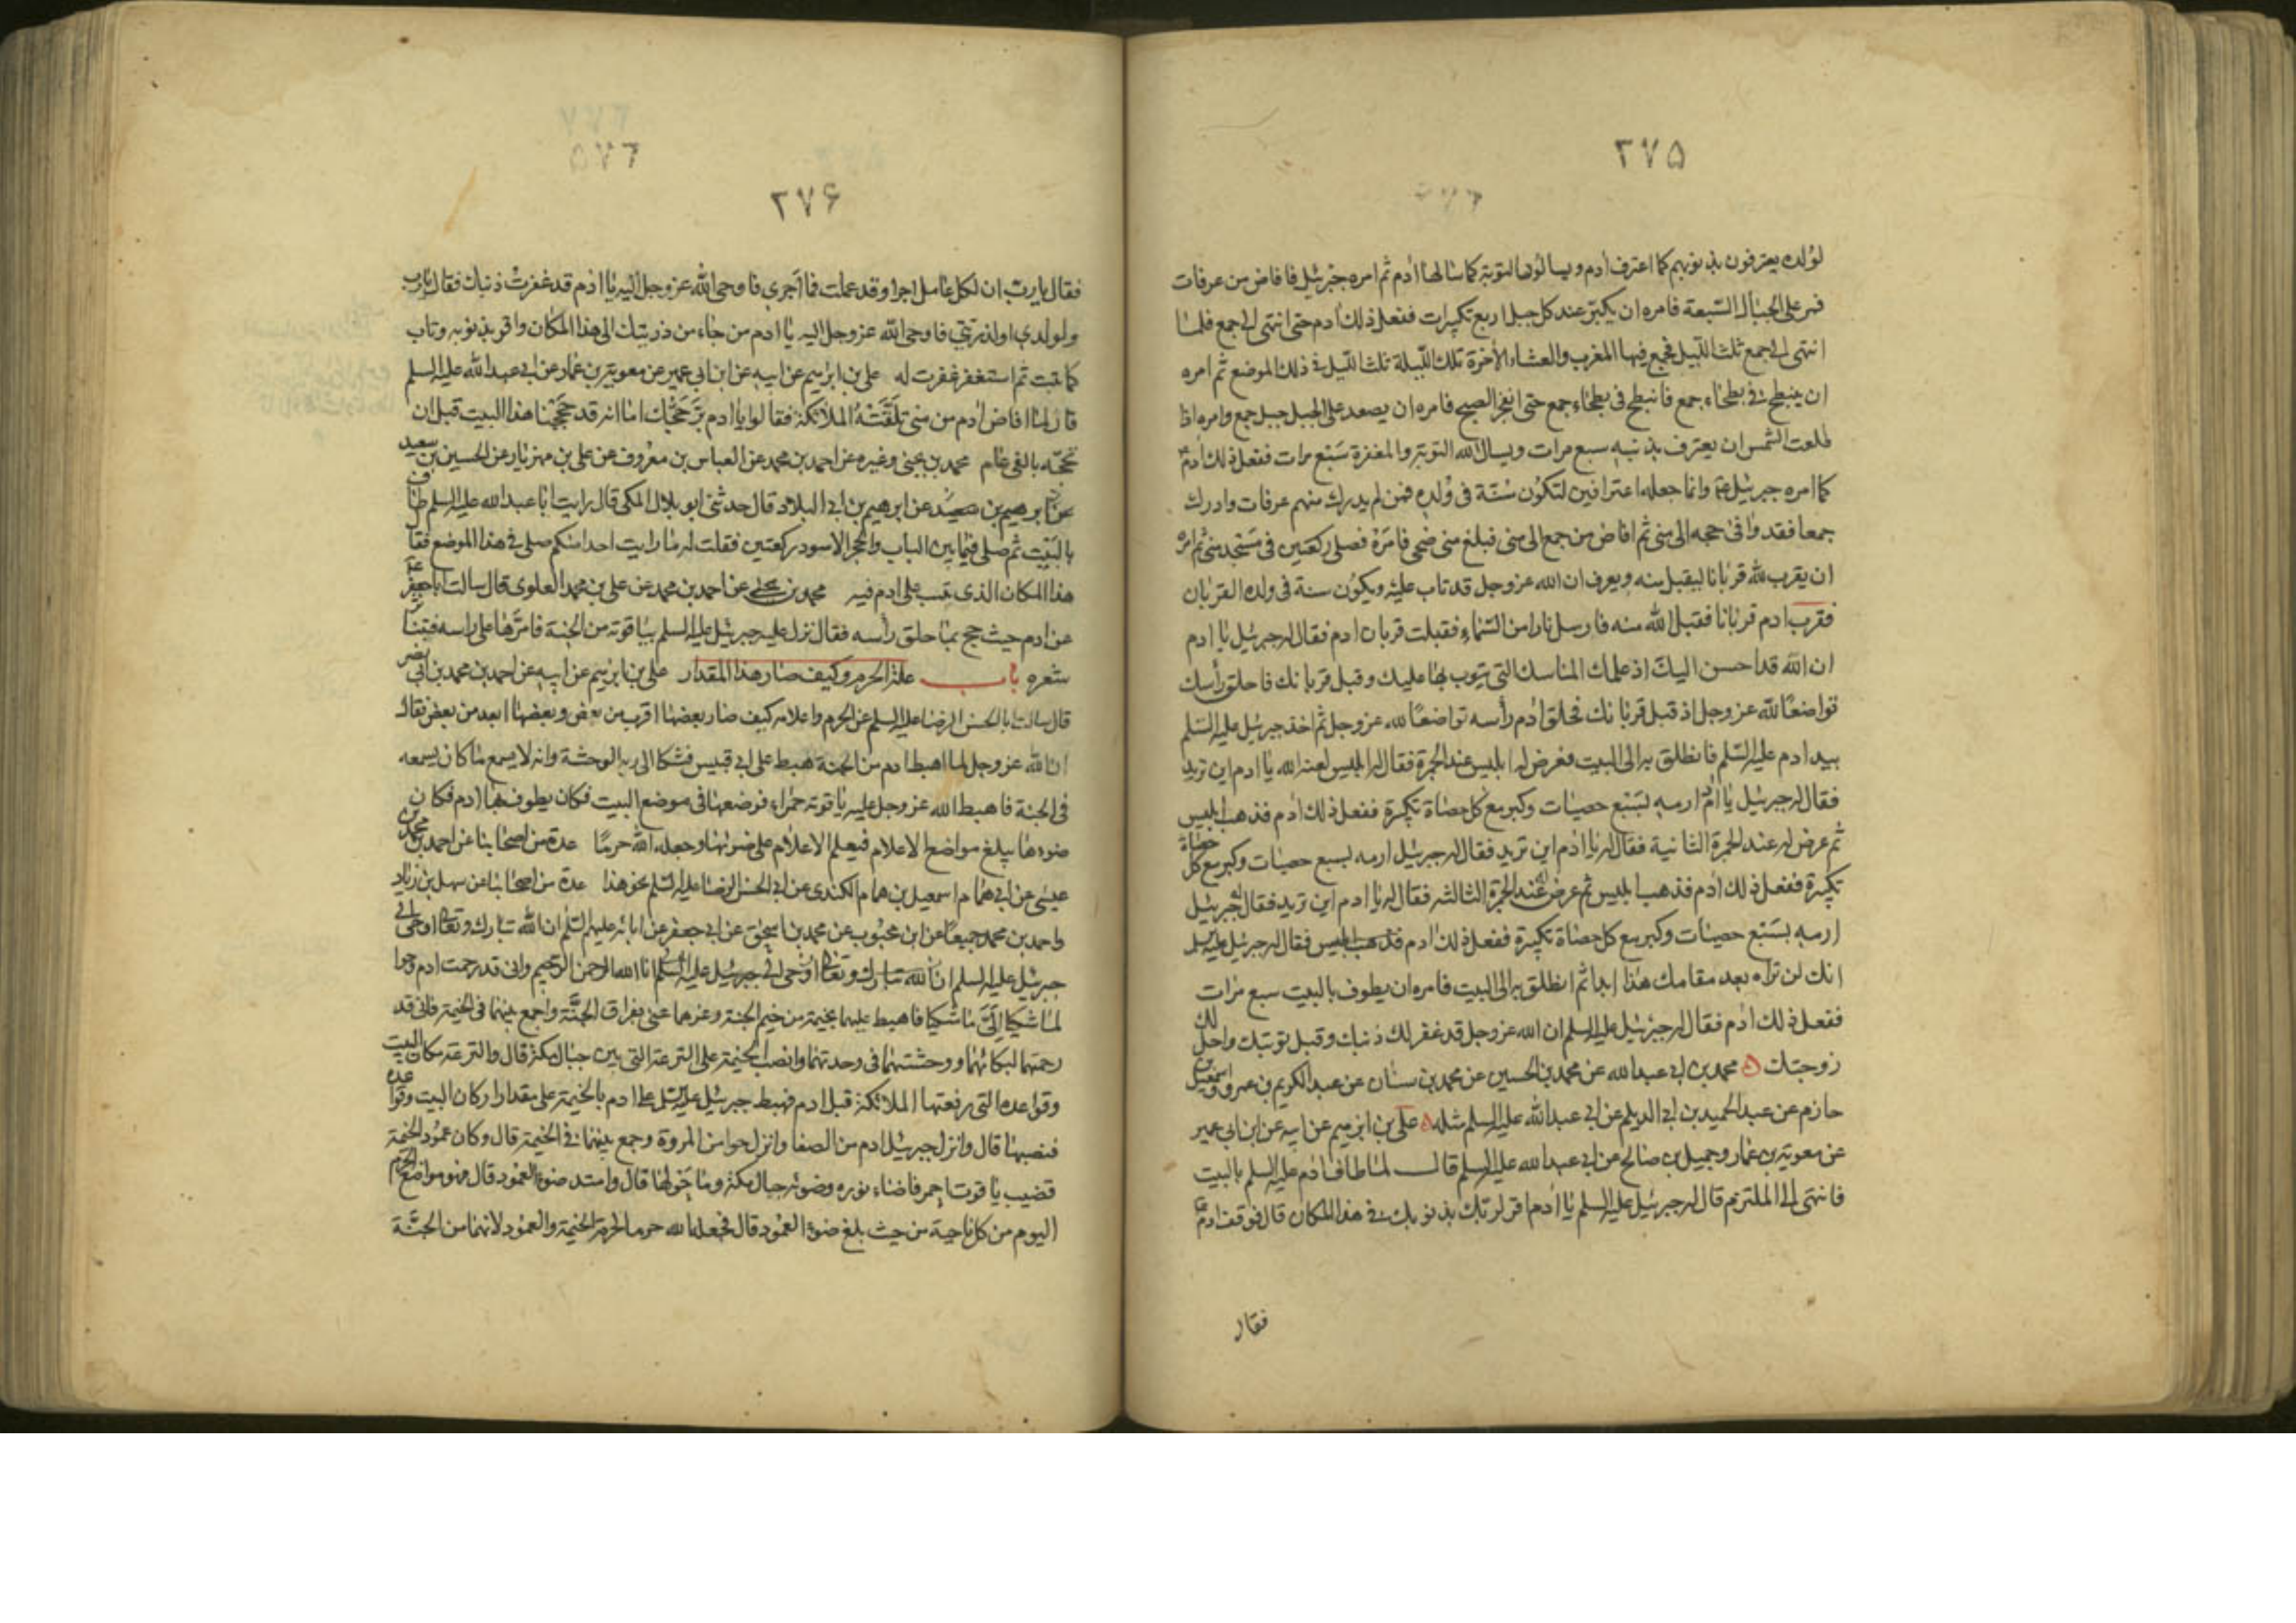 ٢٧۵
لولده يعترفون بذنوبهم كما اعترف ادم ويسالون التوبة كما سالها ادم ثم امره جبرئيل فافاض من عرفات
فمر على الجبال السبعة فامره ان يكبر عند كل جبل اربع تكبيرات ففعل ذلك ادم حتى انتهى الى جمع فلما
انتهى الى جمع ثلث الليل فجمع فيها المغرب والعشاء الاخرة تلك الليلة ثلث الليل في ذلك الموضع ثم امره
ان ينبطح في بطحاء جمع فانبطح في بطحاء جمع حتى انفجر الصبح فامره ان يصعد على الجبل جبل جمع وامره اذا
طلعت الشمس ان يعترف بذنبه سبع مرات ويسال الله التوبة والمغفرة سبع مرات ففعل ذلك ادم
كما امره جبرئيل ع وانما جعله اعترافين لتكون سنة في ولده فمن لم يدرك منهم عرفات وادرك
جمعا فقد وافى حجه الى منى ثم افاض من جمع الى منى فبلغ منى ضحى فامره فصلى ركعتين في مسجد منى ثم امره
ان يقرب لله قربانا ليقبل منه ويعرف ان الله عز وجل قد تاب عليه ويكون سنة في ولده القربان
فقرب ادم قربانا فقبل الله منه فارسل نارا من السماء فقبلت قربان ادم فقال له جبرئيل يا ادم
ان الله قد احسن اليك اذ علمك المناسك التي يتوب بها عليك وقبل قربانك فاحلق رأسك
تواضعا لله عز وجل اذ قبل قربانك فحلق ادم رأسه تواضعا لله عز وجل ثم اخذ جبرئيل عليه السلم
بيد ادم عليه السلم فانطلق به الى البيت فعرض له ابليس عند الجمرة فقال له ابليس لعنه الله يا ادم اين تريد
فقال له جبرئيل يا ادم ارمه بسبع حصيات وكبر مع كل حصاة تكبيرة ففعل ذلك ادم فذهب ابليس
ثم عرض له عند الجمرة الثانية فقال له يا ادم اين تريد فقال له جبرئيل ارمه بسبع حصيات وكبر مع كل حصاة
تكبيرة ففعل ذلك ادم فذهب ابليس ثم عرض له عند الجمرة الثالثة فقال له يا ادم اين تريد فقال له جبرئيل
ارمه بسبع حصيات وكبر مع كل حصاة تكبيرة ففعل ذلك ادم فذهب ابليس فقال له جبرئيل عليه السلم
انك لن تراه بعد مقامك هذا ابدا ثم انطلق به الى البيت فامره ان يطوف بالبيت سبع مرات
ففعل ذلك ادم فقال له جبرئيل عليه السلم ان الله عز وجل قد غفر لك ذنبك وقبل توبتك واحل لك
زوجتك ٥ محمد بن ابي عبد الله عن محمد بن الحسين عن محمد بن سنان عن عبد الكريم بن عمرو واسمعيل بن
حازم عن عبد الحميد بن ابي الديلم عن ابي عبد الله عليه السلم مثله ٥ علي بن ابرهيم عن ابيه عن ابن ابي عمير
عن معوية بن عمار وجميل بن صالح عن ابي عبد الله عليه السلم قال لما طاف ادم عليه السلم بالبيت
فانتهى الى الملتزم قال له جبرئيل عليه السلم يا ادم اقر لربك بذنوبك في هذا المكان قال فوقف ادم ع
فقال
٢٧۶
فقال يا رب ان لكل عامل اجرا وقد عملت فما اجري فاوحى الله عز وجل اليه يا ادم قد غفرت ذنبك فقال يا رب
ولولدي او لذريتي فاوحى الله عز وجل اليه يا ادم من جاء من ذريتك الى هذا المكان واقر بذنوبه وتاب
كما تبت ثم استغفر غفرت له علي بن ابرهيم عن ابيه عن ابن ابي عمير عن معوية بن عمار عن ابي عبد الله عليه السلم
قال لما افاض ادم من منى تلقته الملائكة فقالوا يا ادم بر حجك اما انه قد حججنا هذا البيت قبل ان
تحجه بالفي عام محمد بن يحيى وغيره عن احمد بن محمد عن العباس بن معروف عن علي بن مهزيار عن الحسين بن سعيد
عن ابرهيم بن عن ابرهيم بن ابي البلاد قال حدثني ابو بلال المكي قال رايت ابا عبد الله عليه السلم طاف
بالبيت ثم صلى فيما بين الباب والحجر الاسود ركعتين فقلت له ما رايت احدا منكم صلى في هذا الموضع فقال
هذا المكان الذي تيب على ادم فيه محمد بن يحيى عن احمد بن محمد عن علي بن محمد العلوي قال سالت ابا جعفر ع
عن ادم حيث حج بما حلق رأسه فقال نزل عليه جبرئيل عليه السلم بياقوتة من الجنة فامرها على راسه فتناثر
شعره باب علة الحرم وكيف صار هذا المقدار علي بن ابرهيم عن ابيه عن احمد بن محمد بن ابي نصر
قال سالت ابا الحسن الرضا عليه السلم عن الحرم واعلامه كيف صار بعضها اقرب من بعض وبعضها ابعد من بعض فقال
ان الله عز وجل لما اهبط ادم من الجنة هبط على ابي قبيس فشكا الى ربه الوحشة وانه لا يسمع ما كان يسمعه
في الجنة فاهبط الله عز وجل عليه ياقوتة حمراء فوضعها في موضع البيت فكان يطوف بها ادم فكان
ضوءها يبلغ مواضع الاعلام فيعلم الاعلام على ضوئها وجعله الله حرما عدة من اصحابنا عن احمد بن محمد بن
عيسى عن ابي همام اسمعيل بن همام الكندي عن ابي الحسن الرضا عليه السلم نحو هذا عدة من اصحابنا عن سهل بن زياد
واحمد بن محمد جميعا عن ابن محبوب عن محمد بن اسحق عن ابي جعفر عن ابائه عليهم السلم ان الله تبارك وتعالى اوحى الى
جبرئيل عليه السلم ان الله تبارك وتعالى اوحى الى جبرئيل عليه السلم انا الله الرحمن الرحيم واني قد رحمت ادم وحوا
لما شكيا الي ما شكيا فاهبط عليهما بخيمة من خيم الجنة وعزهما عني بفراق الجنة واجمع بينهما في الخيمة فاني قد
رحمتهما لبكائهما ووحشتهما في وحدتهما وانصب الخيمة على الترعة التي بين جبال مكة قال والترعة مكان البيت
وقواعده التي رفعتها الملائكة قبل ادم فهبط جبرئيل عليه السلم على ادم بالخيمة على مقدار اركان البيت وقواعده
فنصبها قال وانزل جبرئيل ادم من الصفا وانزل حوا من المروة وجمع بينهما في الخيمة قال وكان عمود الخيمة
قضيب ياقوت احمر فاضاء نوره وضوئه جبال مكة وما حولها قال وامتد ضوء العمود قال فهو مواضع الحرم
اليوم من كل ناحية من حيث بلغ ضوء العمود قال فجعله الله حرما لحرمة الخيمة والعمود لانهما من الجنة